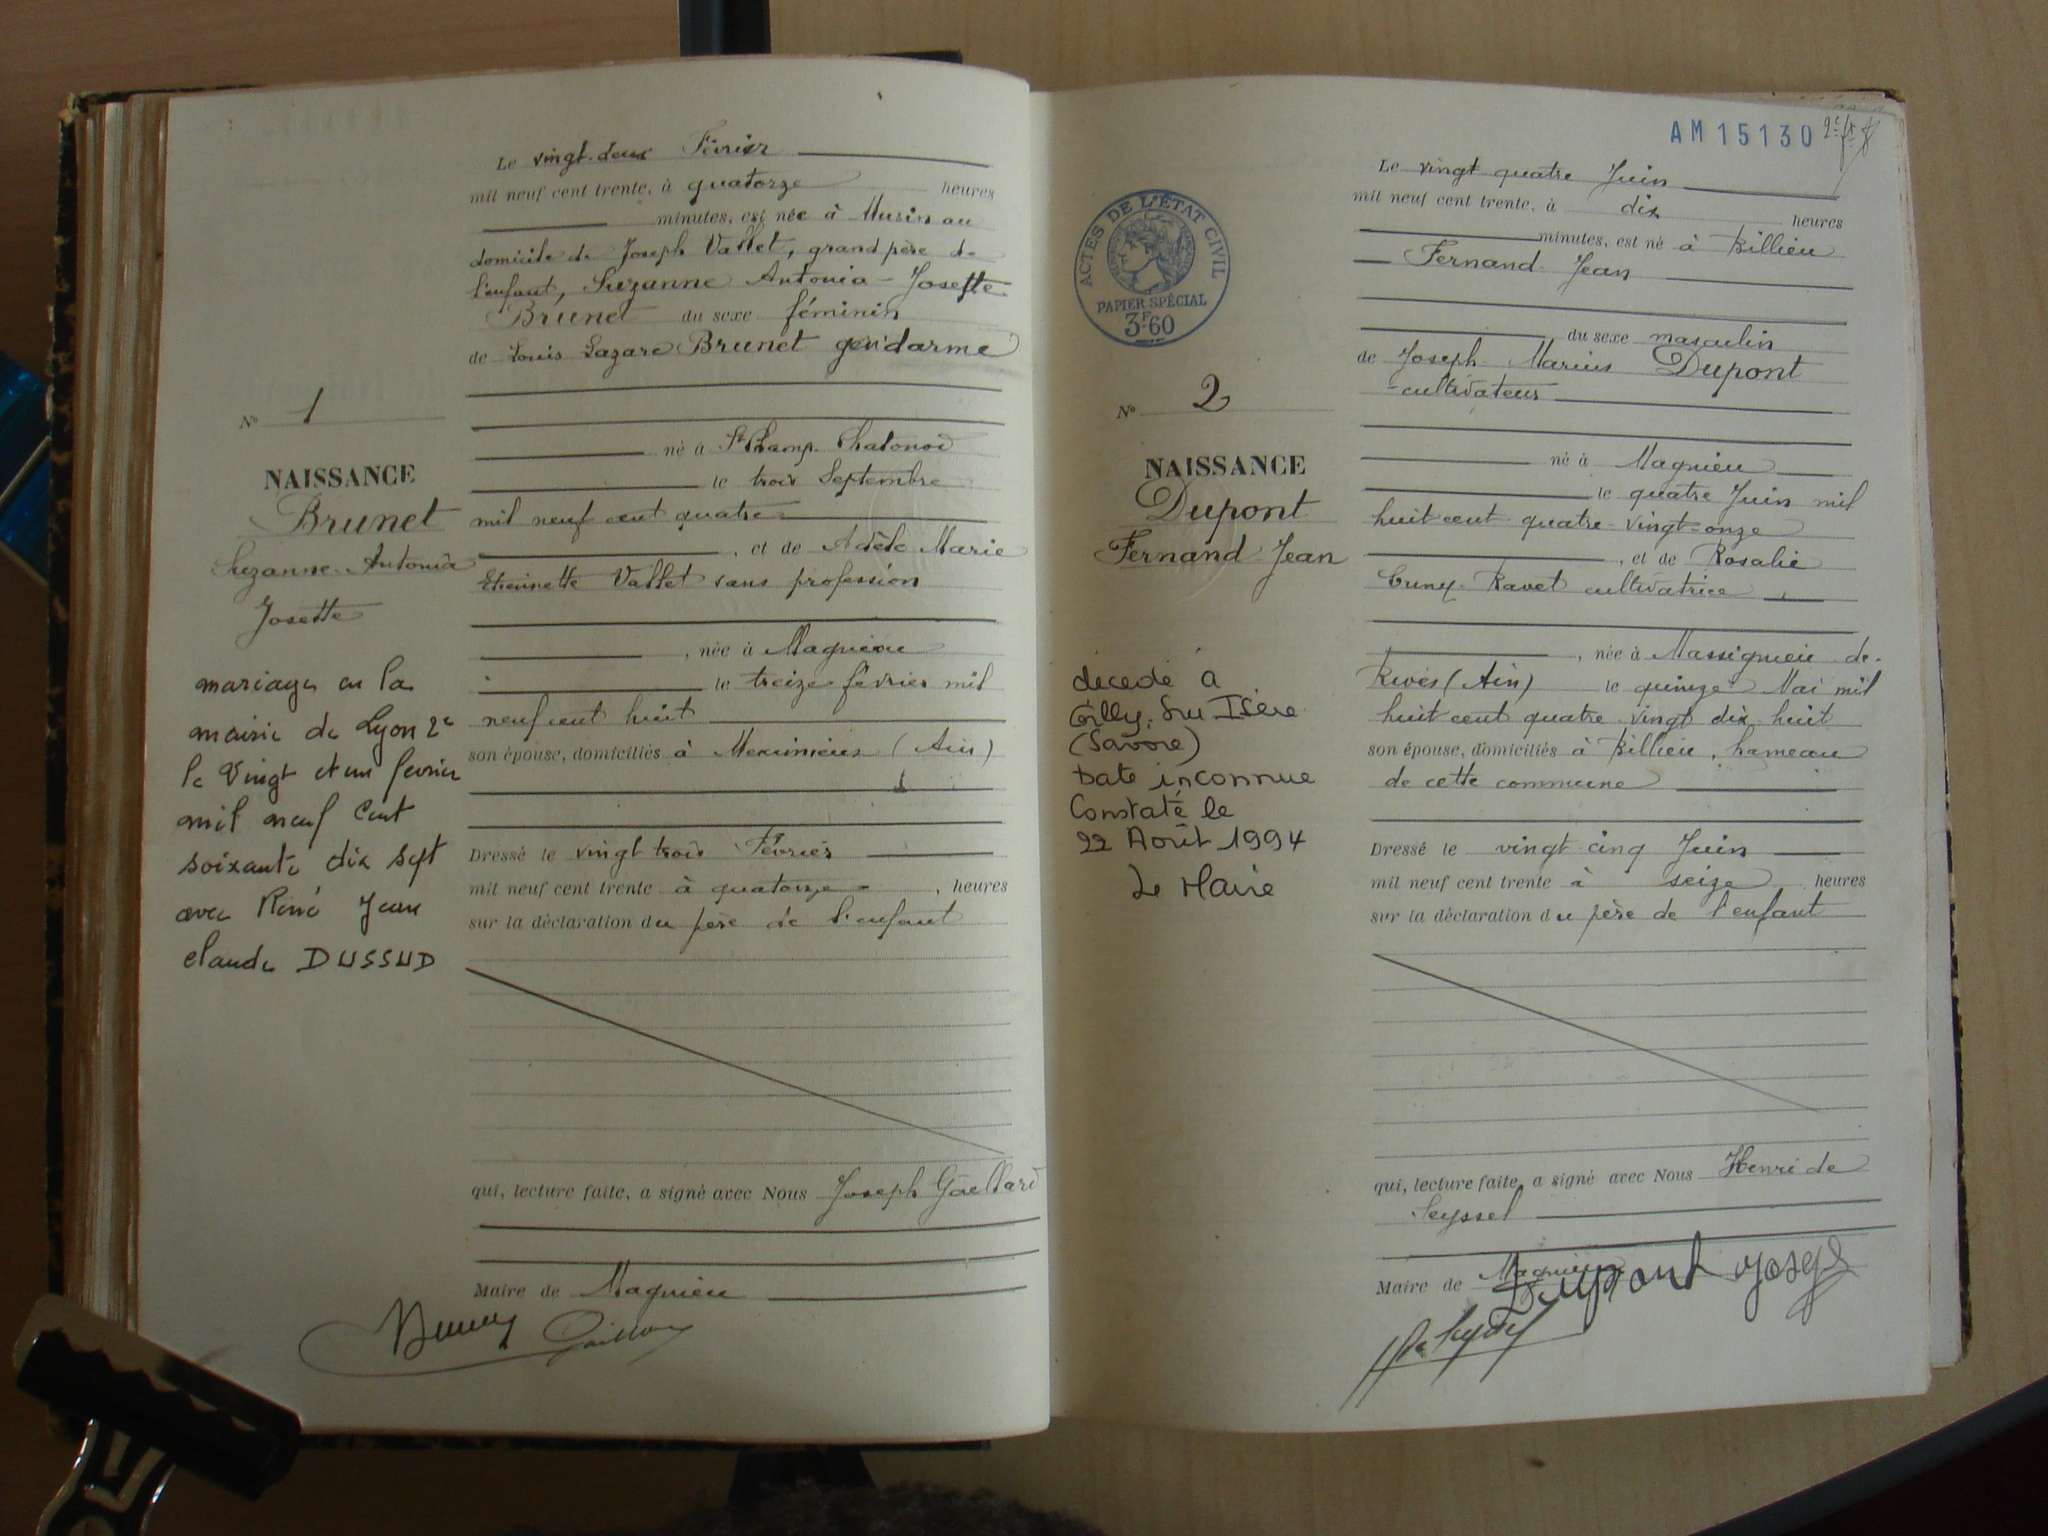 Le vingt-deux Février
mil neuf cent trente, à quatorze heures
minutes, est née à Musin au
domicile de Joseph Vallet, grand père de
l'enfant, Suzanne Antonia-Josette
Brunet du sexe féminin
de Louis Lazare Brunet gendarme
N° 1
né à St Champ Chatonod
NAISSANCE
le trois Septembre
Brunet
mil neuf cent quatre
Suzanne-Antonia
, et de Adèle Marie
Josette
Etiennette Vallet sans profession
, née à Magnieu
le treize février mil
neuf cent huit
son épouse, domiciliés à Meximieux (Ain)
mariage en la
mairie de Lyon 2e
le vingt et un fevrier
mil neuf cent
soixante dix sept
avec René Jean
claude DUSSUD
Dressé le vingt trois Février
mil neuf cent trente à quatorze, heures
sur la déclaration du père de l'enfant
qui, lecture faite, a signé avec Nous Joseph Gaillard
Maire de Magnieu
AM 15130
Le vingt quatre Juin
mil neuf cent trente, à dix heures
minutes, est né à Billieu
Fernand-Jean
ACTES DE L'ÉTAT CIVIL
PAPIER SPÉCIAL
3F60
du sexe masculin
de Joseph Marius Dupont
-cultivateur
N° 2
né à Magnieu
NAISSANCE
le quatre Juin mil
Dupont
huit cent quatre-vingt-onze
Fernand-Jean
, et de Rosalie
Cuny-Ravet cultivatrice
, née à Massignieu de
Rives (Ain) le quinze Mai mil
huit cent quatre vingt dix huit
son épouse, domiciliés à Billieu, hameau
de cette commune
décedé à
Gilly-Sur Isère
(Savoie)
Date inconnue
Constaté le
22 Août 1994
Le Maire
Dressé le vingt cinq Juin
mil neuf cent trente à seize heures
sur la déclaration du père de l'enfant
qui, lecture faite, a signé avec Nous Henri de
Seyssel
Maire de Magnieu
Dupont Joseph